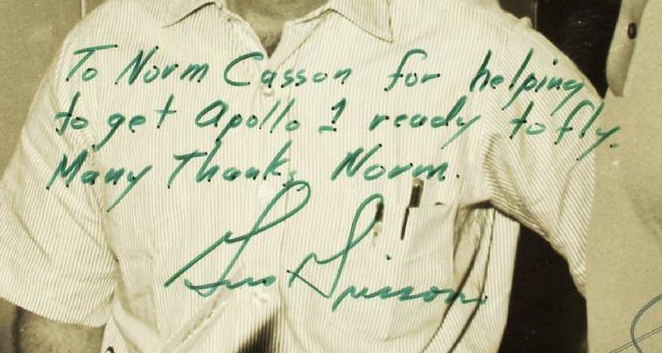 To Norm Casson for helping
to get Apollo 1 ready to fly.
Many Thanks, Norm.
Gus Grissom